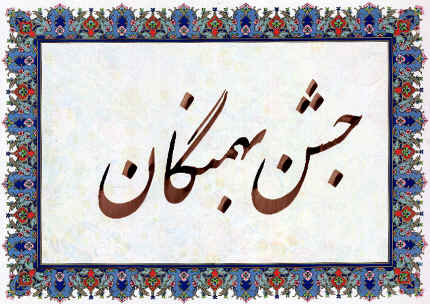 جشن بهمنگان